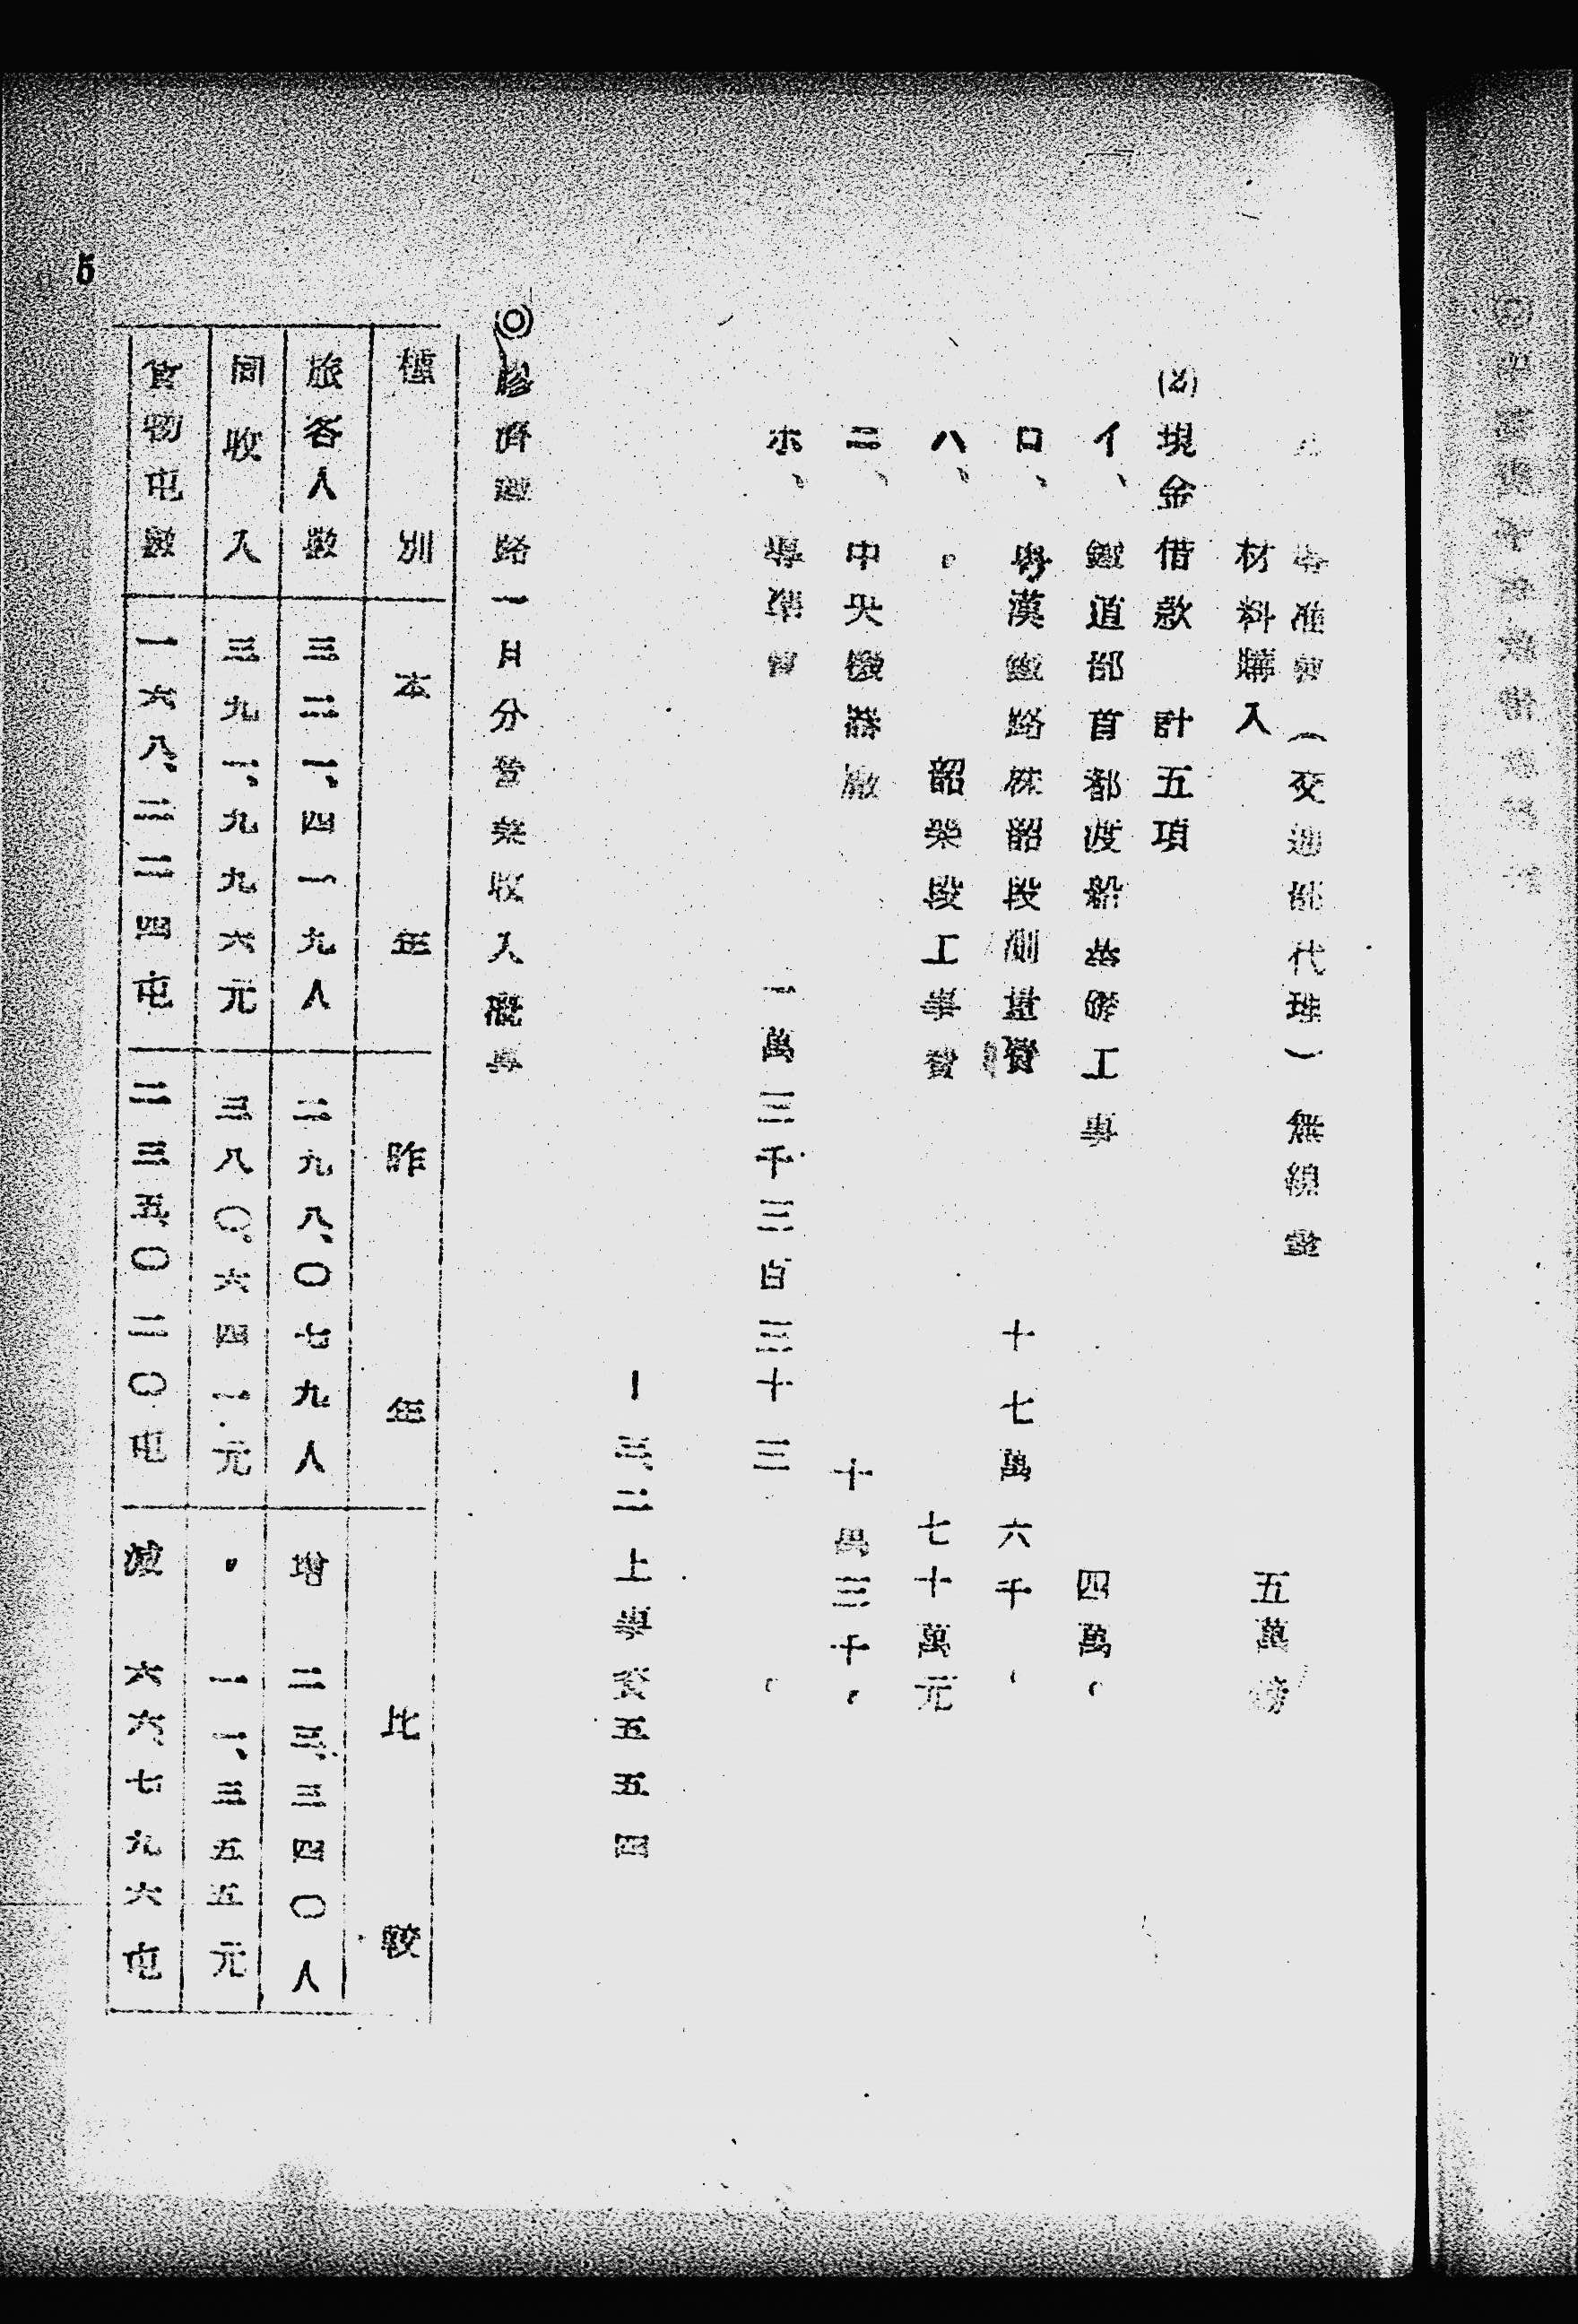 導准會（交通部代理）無線電
材料購入 五萬磅
(2)現金借款 計五項
イ、鐵道部首都渡船基礎工事 四萬〃
ロ、粤漢鐵路株韶段測量費 十七萬六千〃
ハ、〃 韶樂段工事費 七十萬元
ニ、中央機器廠 十萬三千〃
ホ、導準會 一萬三千三百三十三〃
ー三、二上學資五五四
◎膠濟鐵路一月分營業收入概算
種別 本年 昨年 比較
旅客人數 三二一、四一九人 二九八、〇七九人 增 二三、三四〇人
同收入 三九一、九九六元 三八〇、六四一元 〃 一一、三五五元
貨物屯數 一六八、二二四屯 二三五、〇二〇屯 減 六六、七九六屯
5